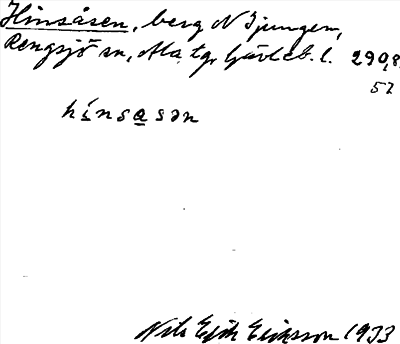 Hinsåsen, berg N Ijungen,
Rengsjö sn, Ala tg, Gävleb. l. 290,8
57
hinsasən
Nils Erik Eriksson 1933